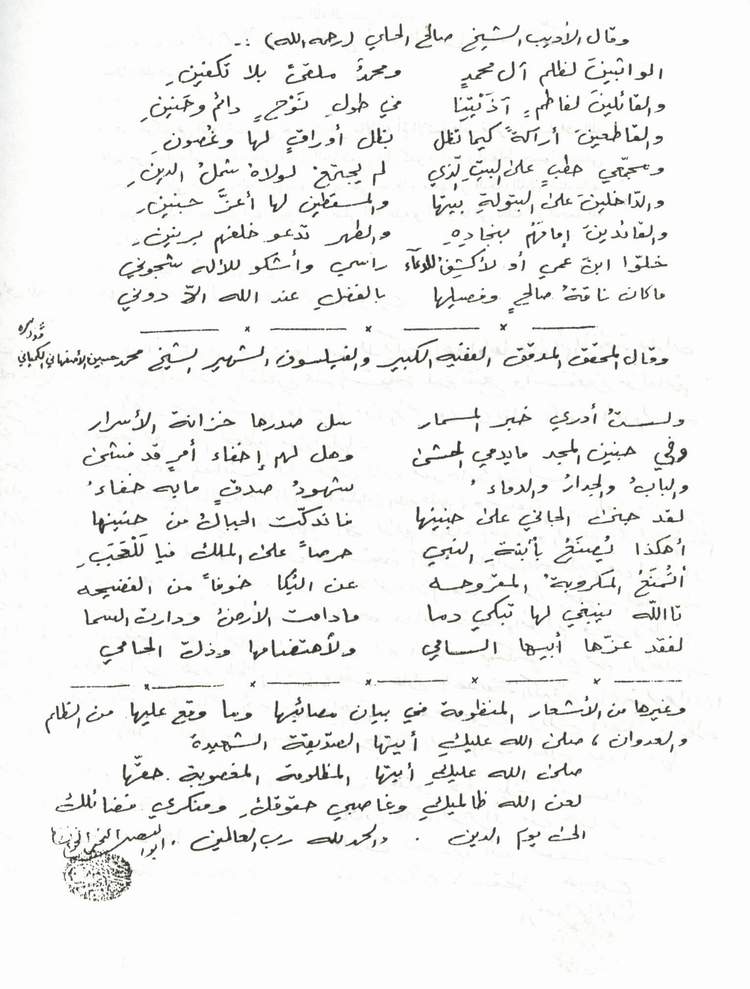 وقال الأديب الشيخ صالح الحلي (رحمه الله) :-
الواثبين لظلم آل محمدٍ ومحمدٌ ملقىً بلا تكفينِ
والقائلين لفاطمٍ آذيتِنا في طولِ نَوْحٍ دائمٍ وحَنينِ
والقاطعين أراكةً كيما تظل بظل أوراقٍ لها وغُصونِ
ومجمّعي حطبٍ على البيتِ الذي لم يجتمع لولاهُ شملُ الدينِ
والدّاخلين على البتولةِ بيتها والمسقطين لها أعزَّ جنينِ
والقائدين إمامَهُم بنجادِهِ والطهر تدعو خلفهم برنينِ
خلّوا ابن عمي أو لأكشِفُ للدعاء راسي وأشكو للاله شجوني
ما كان ناقةُ صالحٍ وفصيلِها بالفضلِ عند الله الاّ دوني
وقال المحقق المدقق الفقيه الكبير والفيلسوف الشهير الشيخ محمد حسين الأصفهاني الكمپاني قدّس سره
ولستُ أدري خبر المسمار سل صدرها خزانة الأسرار
وفي جنين المجد ما يدمي الحشى وهل لهم إخفاء أمرٍ قد فشى
والبابُ والجدارُ والدماءُ شهودُ صدقٍ ما به خفاءُ
لقد جنى الجاني على جنينها فاندكّت الجبالُ من حنينها
أهكذا يُصنَعُ بأبنةِ النبي حرصاً على الملك فيا لَلْعَجَبِ
أتُمنَعُ المكروبةُ المقروحه عن البُكا خوفاً من الفضيحه
تاالله ينبغي لها تبكي دما مادامت الأرضُ ودارت السما
لفقد عزّها أبيها السامي ولأهتضامها وذلة الحامي
وغيرها من الأشعار المنظومة في بيان مصائبها وما وقع عليها من الظلم
والعدوان ، صلى الله عليكِ أيتها الصدّيقة الشهيدة
صلى الله عليكِ أيتها المظلومة المغصوبة حقّها
لعن الله ظالميكِ وغاصبي حقوقكِ ومنكري فضائلك
الى يوم الدين . والحمد لله رب العالمين .